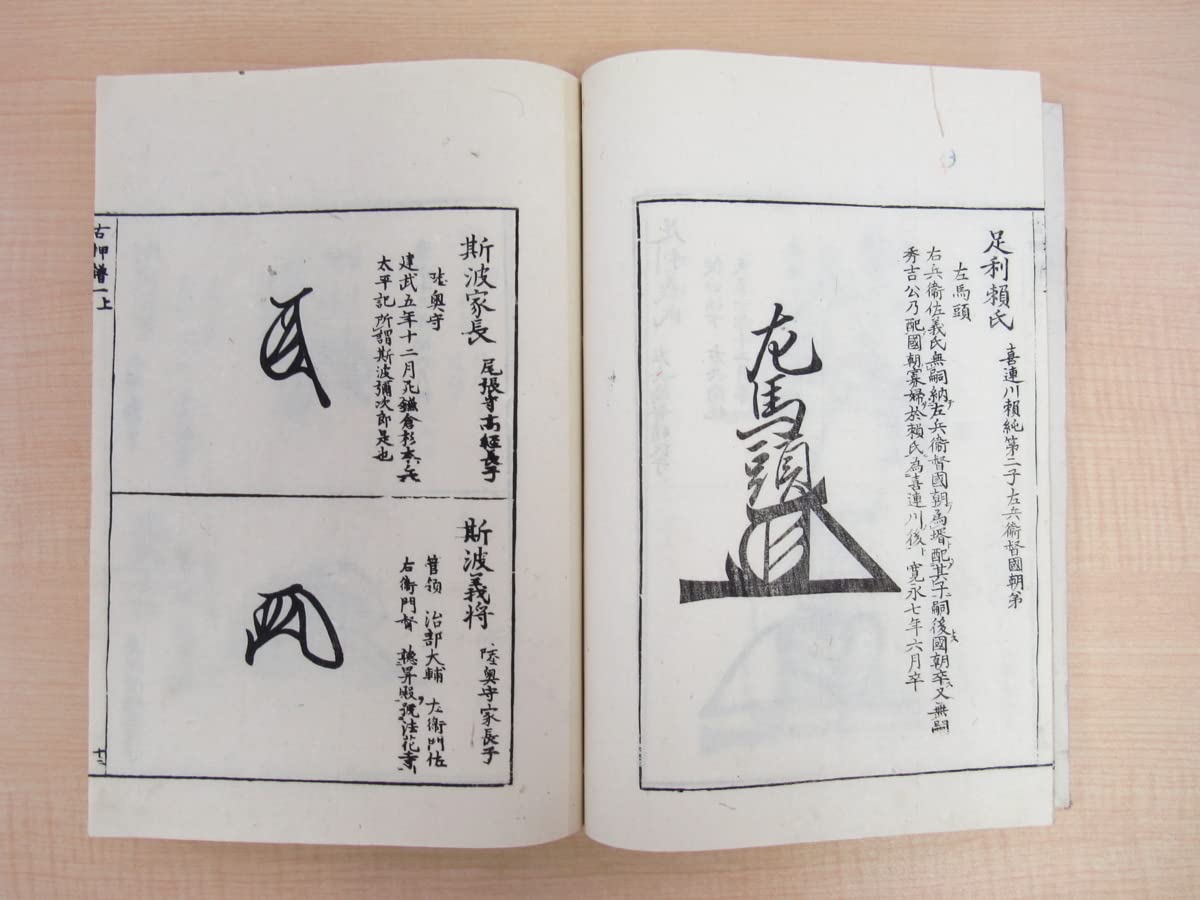 足利頼氏 喜連川頼純第二子左兵衞督國朝弟
左馬頭
右兵衞佐義氏無嗣納左兵衞督國朝為壻配其子嗣後國朝卒又無嗣
秀吉公乃配國朝寡婦於頼氏為喜連川後寛永七年六月卒
左馬頭
斯波家長 尾張守高經長子
陸奥守
建武五年十二月死鎌倉杉本之兵
太平記所謂斯波彌次郎是也
斯波義将 陸奥守家長子
管領 治部大輔 左衞門佐
右衞門督 號法花寺
古押譜一上
十二